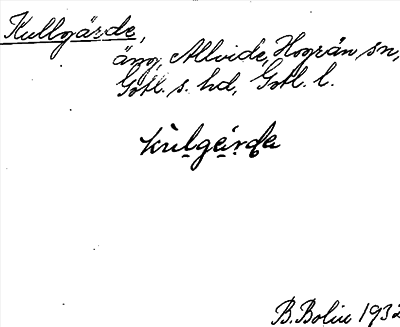 Kullgärde,
äng, Allvide, Hogrän sn,
Gotl. s. hd, Gotl. l.
B. Bolin 1932